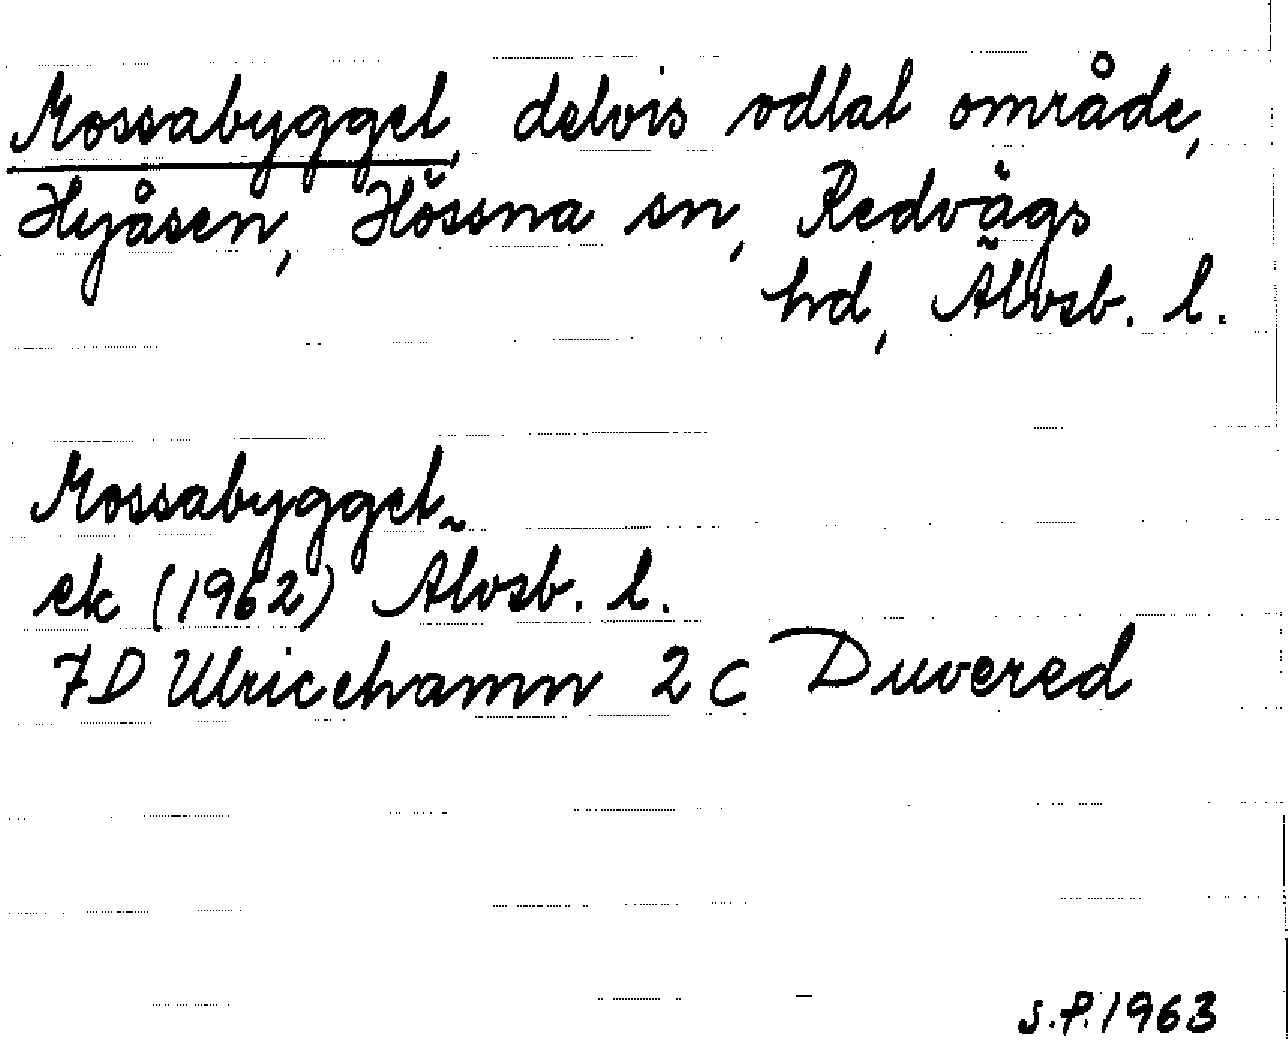 Mossabygget, delvis odlat område,
Hyåsen, Hössna sn, Redvägs
hd, Älvsb. l.
Mossabygget
ek (1962) Älvsb. l.
7D Ulricehamn 2c Duvered
S.P. 1963